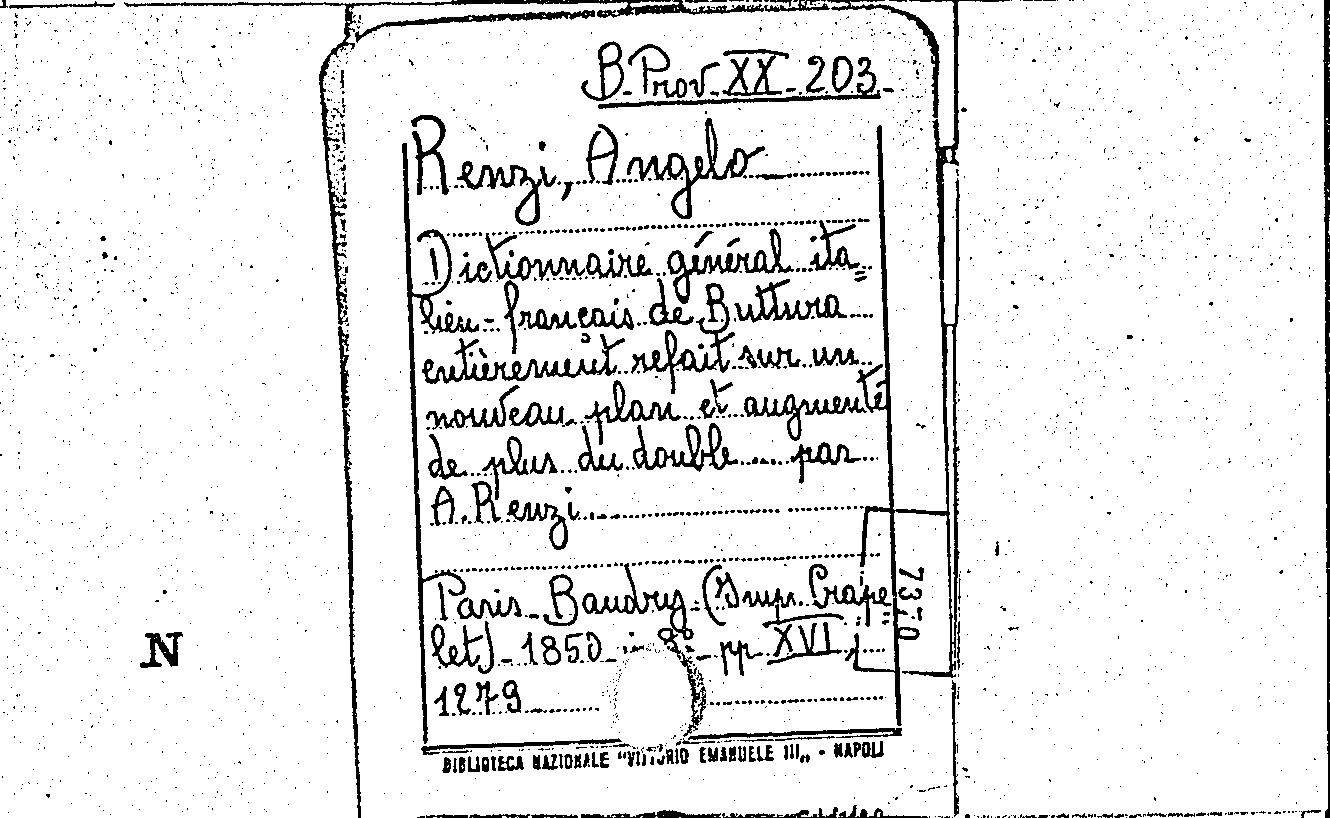 B. Prov. XX. 203.
Renzi, Angelo
Dictionnaire général ita=
lien-français de Buttura
entièrement refait sur un
nouveau plan et augmenté
de plus du double ... par
A. Renzi ...
Paris. Baudry. (Imp. Crape=
let). 1850. in 8° pp. XVI,
1279
7370
N
BIBLIOTECA NAZIONALE "VITTORIO EMANUELE III" - NAPOLI